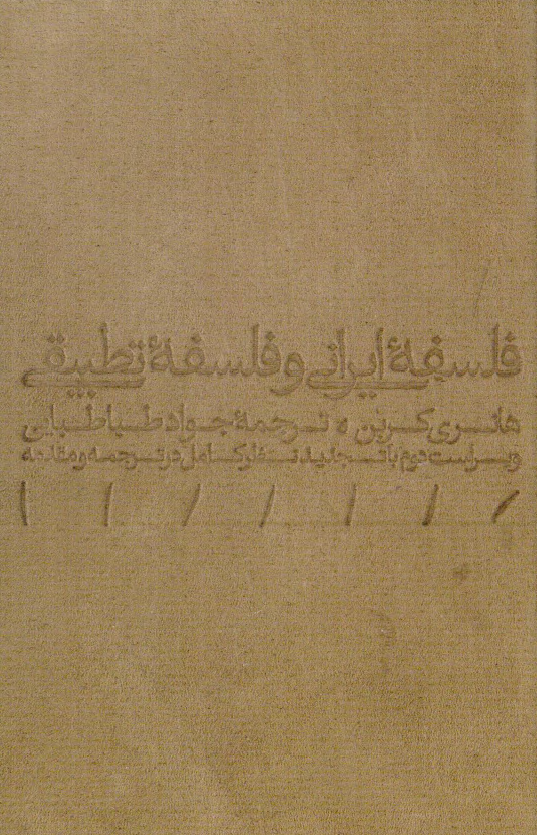 فلسفهٔ ایرانی و فلسفهٔ تطبیقی
هانری کربن • ترجمهٔ جواد طباطبایی
ویراست دوم با تجدید نظر کامل در ترجمه و مقدمه